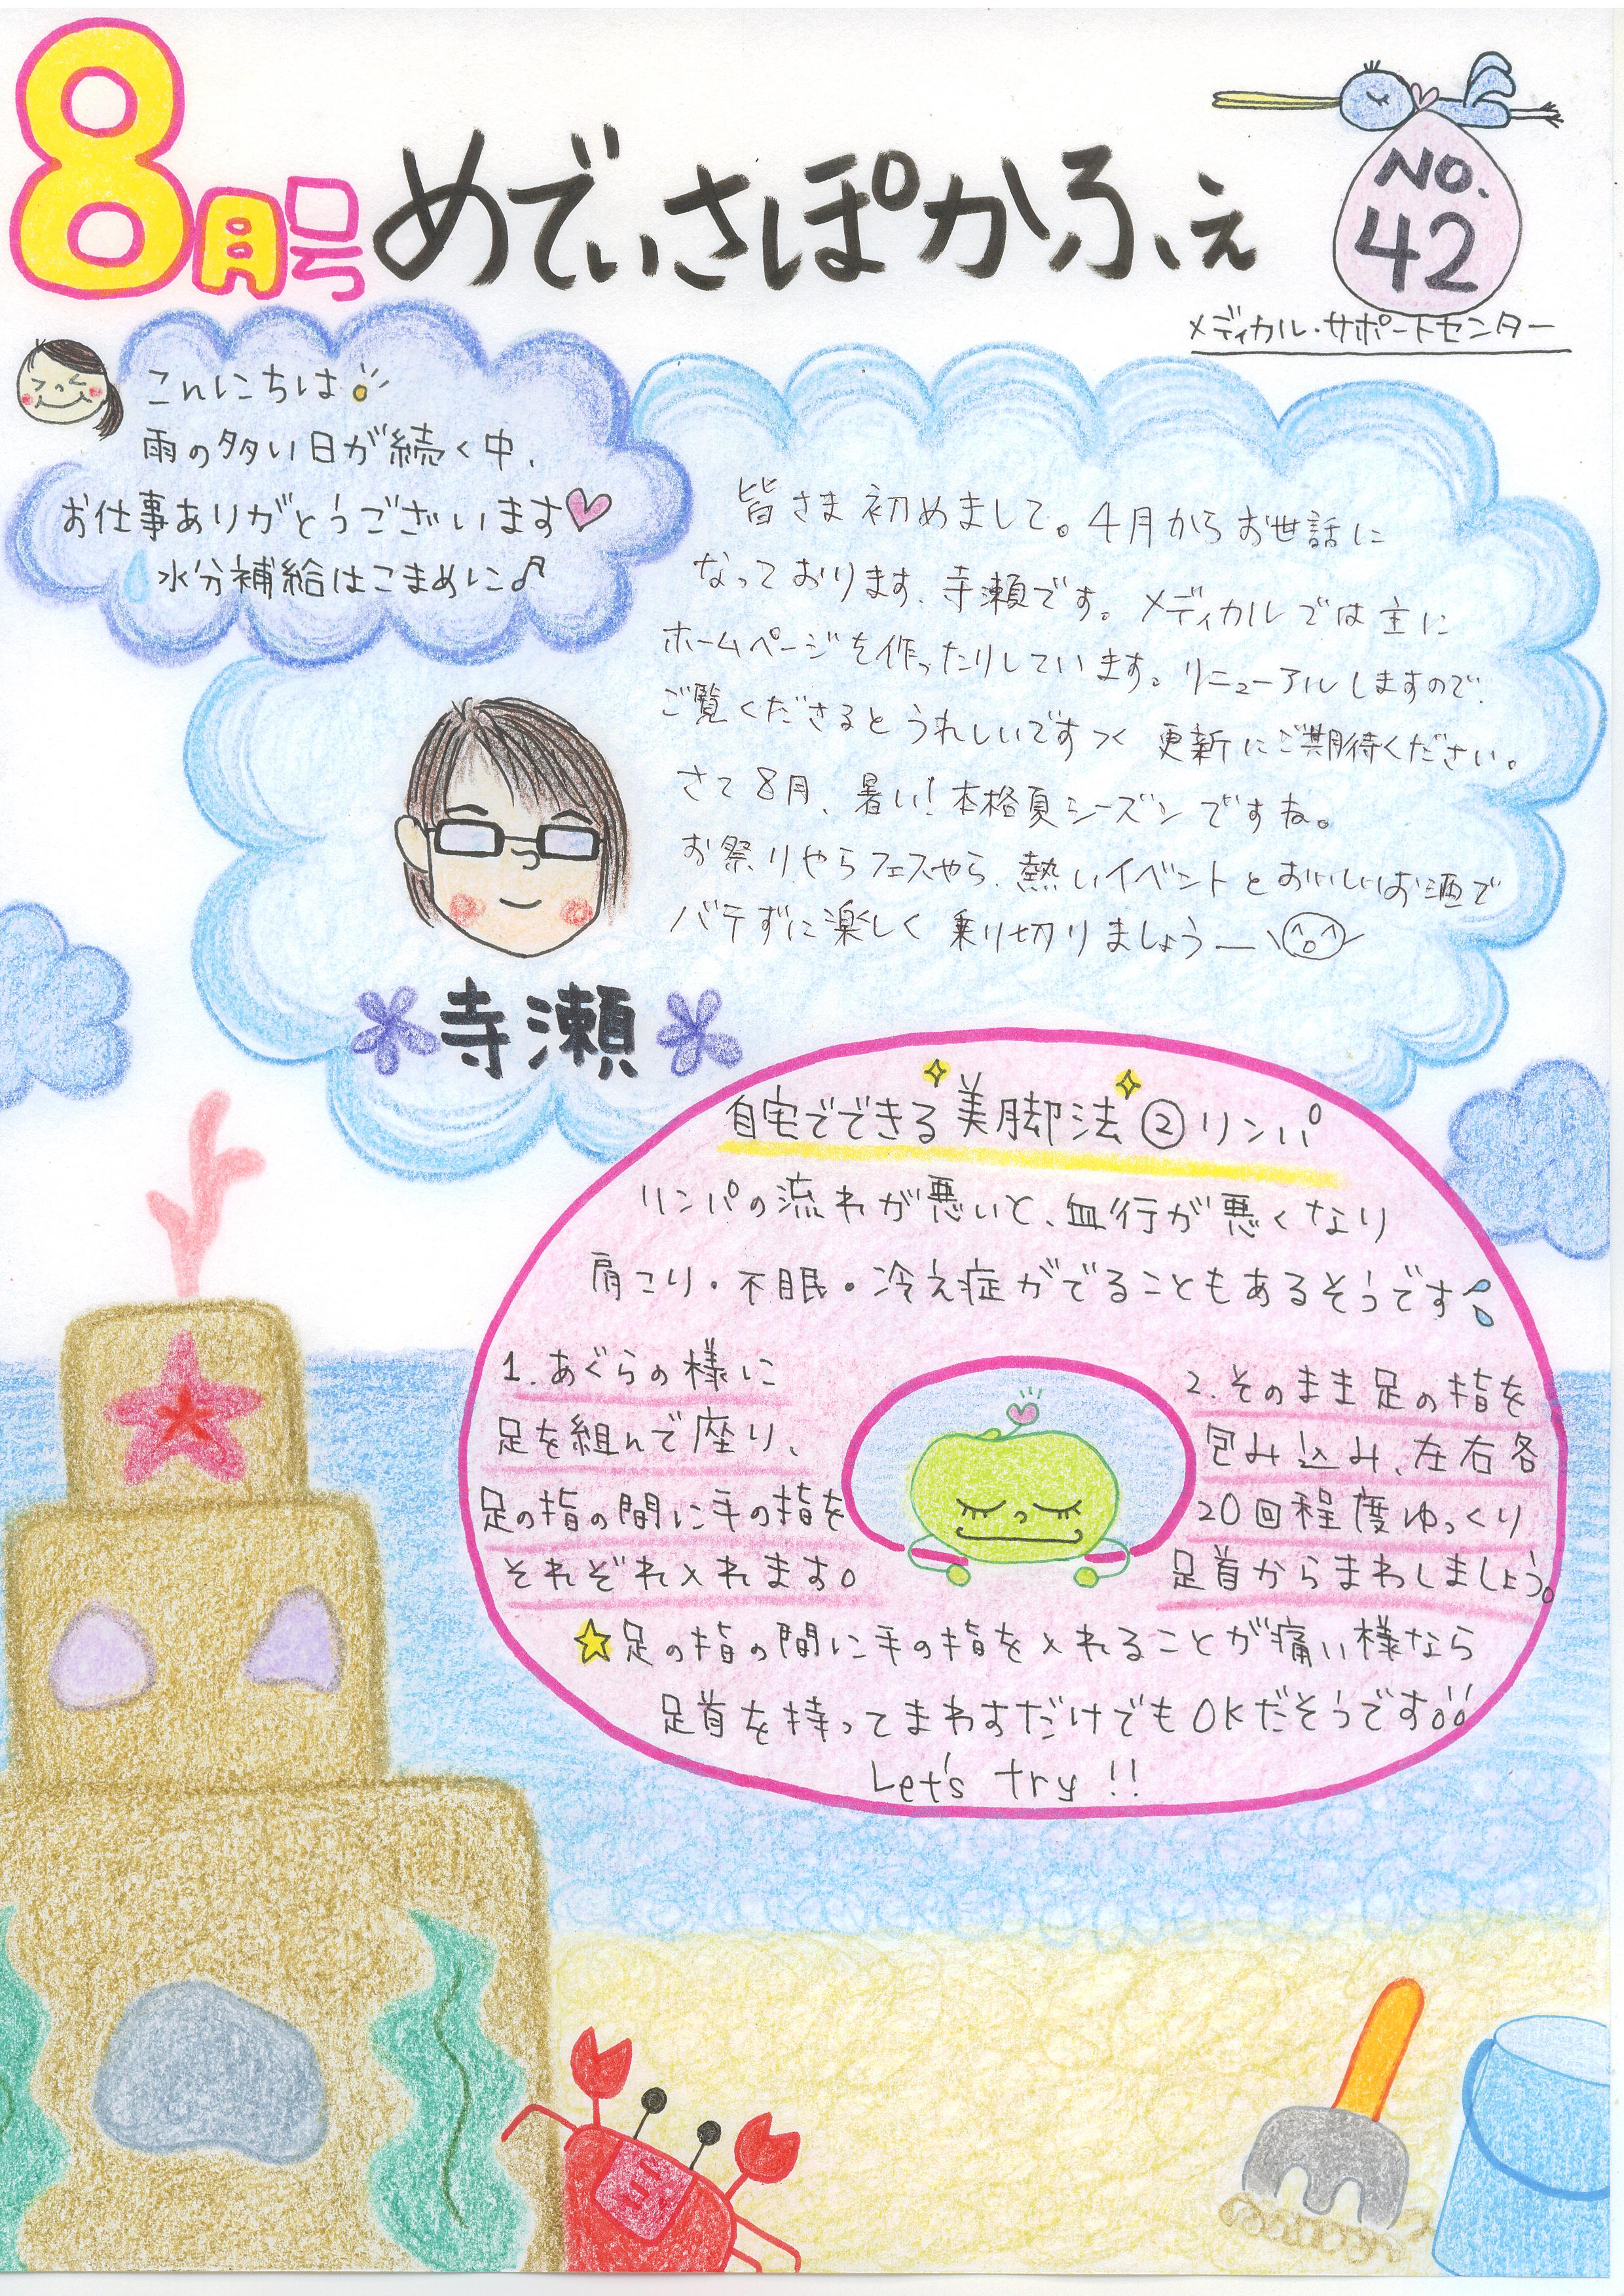 8月号 めでぃさぽかふぇ
NO.
42
メディカル・サポートセンター
こんにちは
雨の多い日が続く中、
お仕事ありがとうございます♥
水分補給はこまめに♪
皆さま初めまして。4月からお世話に
なっております、寺瀬です。メディカルでは主に
ホームページを作ったりしています。リニューアルしますので
ご覧くださるとうれしいです 更新にご期待ください。
さて8月、暑い!本格夏シーズンですね。
お祭りやらフェスやら、熱いイベントとおいしいお酒で
バテずに楽しく乗り切りましょうー
寺瀬
自宅でできる美脚法②リンパ
リンパの流れが悪いと、血行が悪くなり
肩こり・不眠・冷え症がでることもあるそうです
1.あぐらの様に
足を組んで座り、
足の指の間に手の指を
それぞれ入れます。
2.そのまま足の指を
包み込み、左右各
20回程度ゆっくり
足首からまわしましょう。
☆足の指の間に手の指を入れることが痛い様なら
足首を持ってまわすだけでもOKだそうです!!
Let's try!!